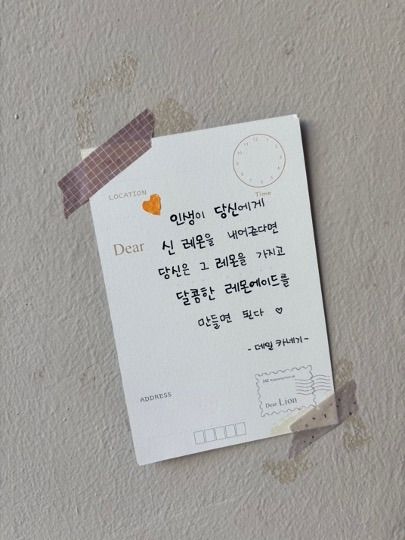 LOCATION
Time
인생이 당신에게
Dear
신 레몬을 내어준다면
당신은 그 레몬을 가지고
달콤한 레몬에이드를
만들면 된다 ♡
- 데일 카네기 -
ADDRESS
Dear Lion